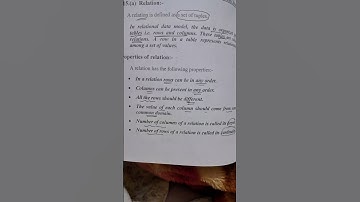 15.(a) Relation:-
A relation is defined as a set of tuples.
In relational data model, the data is
tables i.e. rows and columns. These
relations. A row in a table represents
among a set of values.
roperties of relation:-
A relation has the following properties:-
• In a relation rows can be in any order.
• Columns can be present in any order.
• All the rows should be different.
• The value of each column should come from
common domain.
• Number of columns of a relation is called its
• Number of rows of a relation is called its